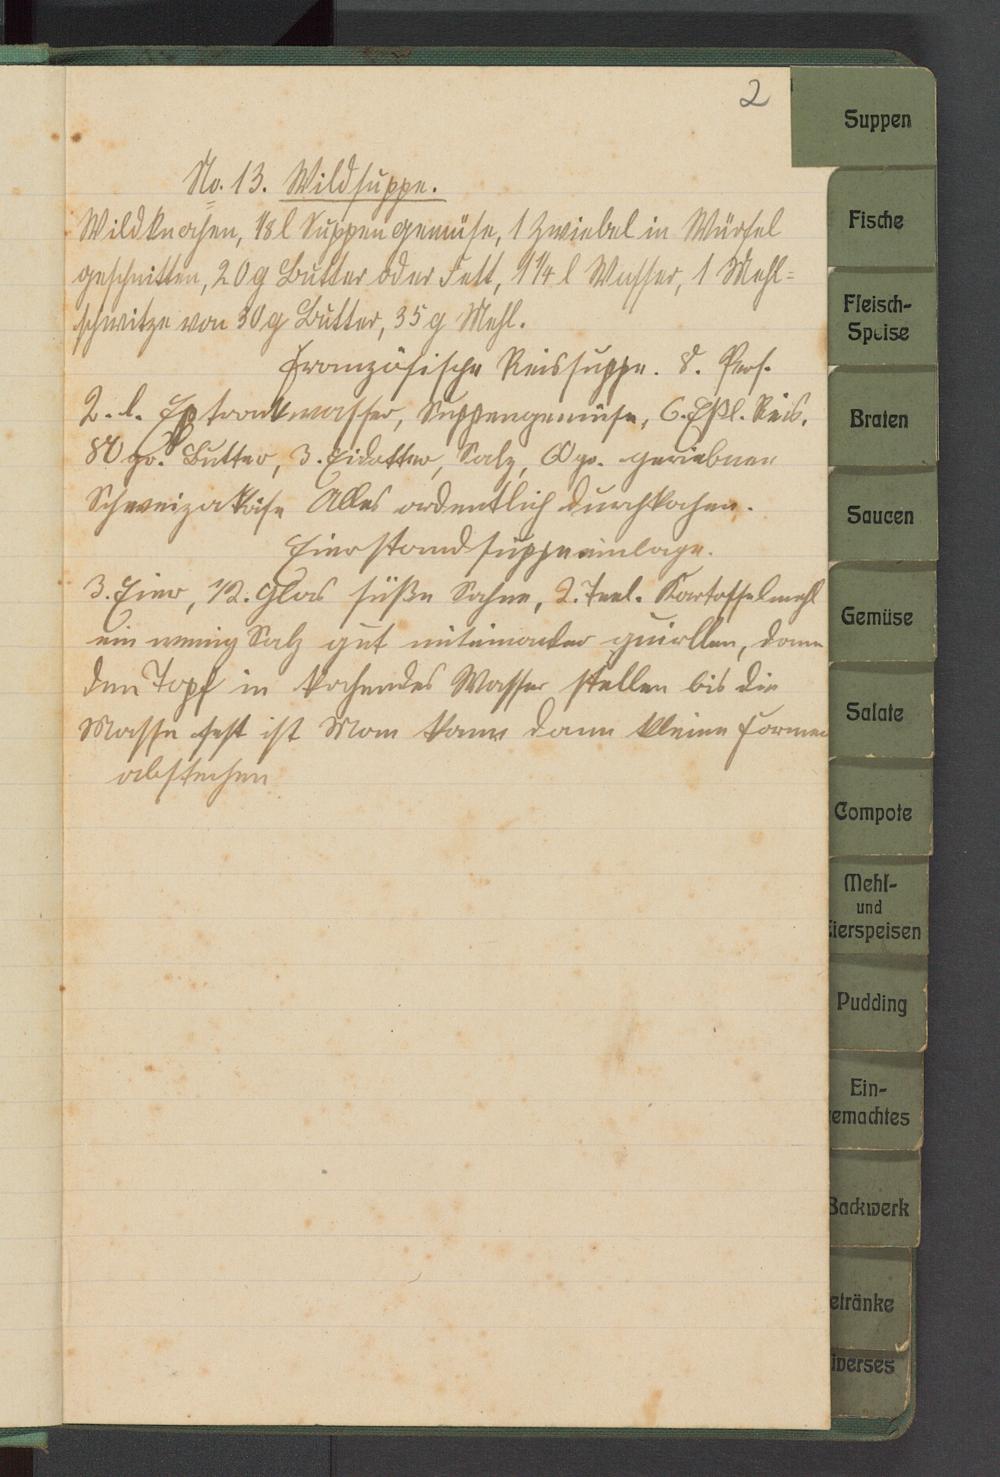 2
No. 13. Wildsuppe.
Wildknochen, 1/8 l Suppengemüse, 1 Zwiebel in Würfel
geschnitten, 20 g Butter oder Fett, 1 1/4 l Wasser, 1 Mehl=
schwitze von 30 g Butter, 35 g Mehl.
Französische Reissuppe. 8. Pers.
2. l. Suppengemüse, 6. Eßl. Reis.
80 gr. Butter, 3. Eidotter, Salz, gr. geriebener
Schweizerkäse Alles ordentlich durchkochen.
Eierstandsuppeneinlage.
3. Eier, 1/2. Glas süße Sahne, 2. Teel. Kartoffelmehl
ein wenig Salz gut miteinander quirllen, dann
den Topf in kochendes Wasser stellen bis die
Masse fest ist Man kann dann kleine Formen
abstechen
Suppen
Fische
Fleisch-
Speise
Braten
Saucen
Gemüse
Salate
Compote
Mehl-
und
Eierspeisen
Pudding
Ein-
emachtes
Backwerk
etränke
iverses